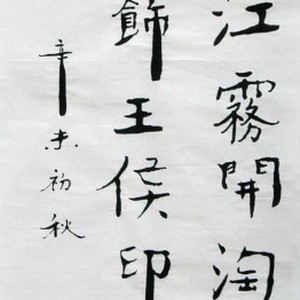 江霧開淘
飾王侯印
辛未初秋